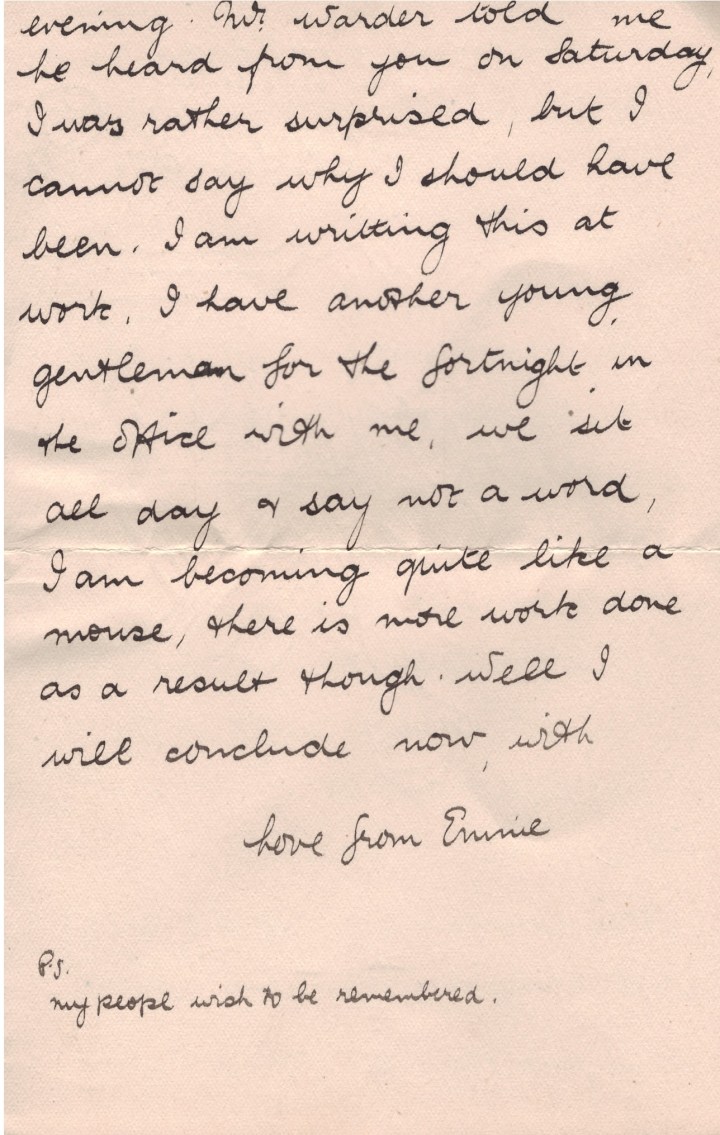 evening. Mr. Warder told me
he heard from you on Saturday,
I was rather surprised, but I
cannot say why I should have
been. I am writting this at
work, I have another young
gentleman for the fortnight in
the office with me, we sit
all day & say not a word,
I am becoming quite like a
mouse, there is more work done
as a result though. Well I
will conclude now, with
love from Emmie
P.S.
my people wish to be remembered.